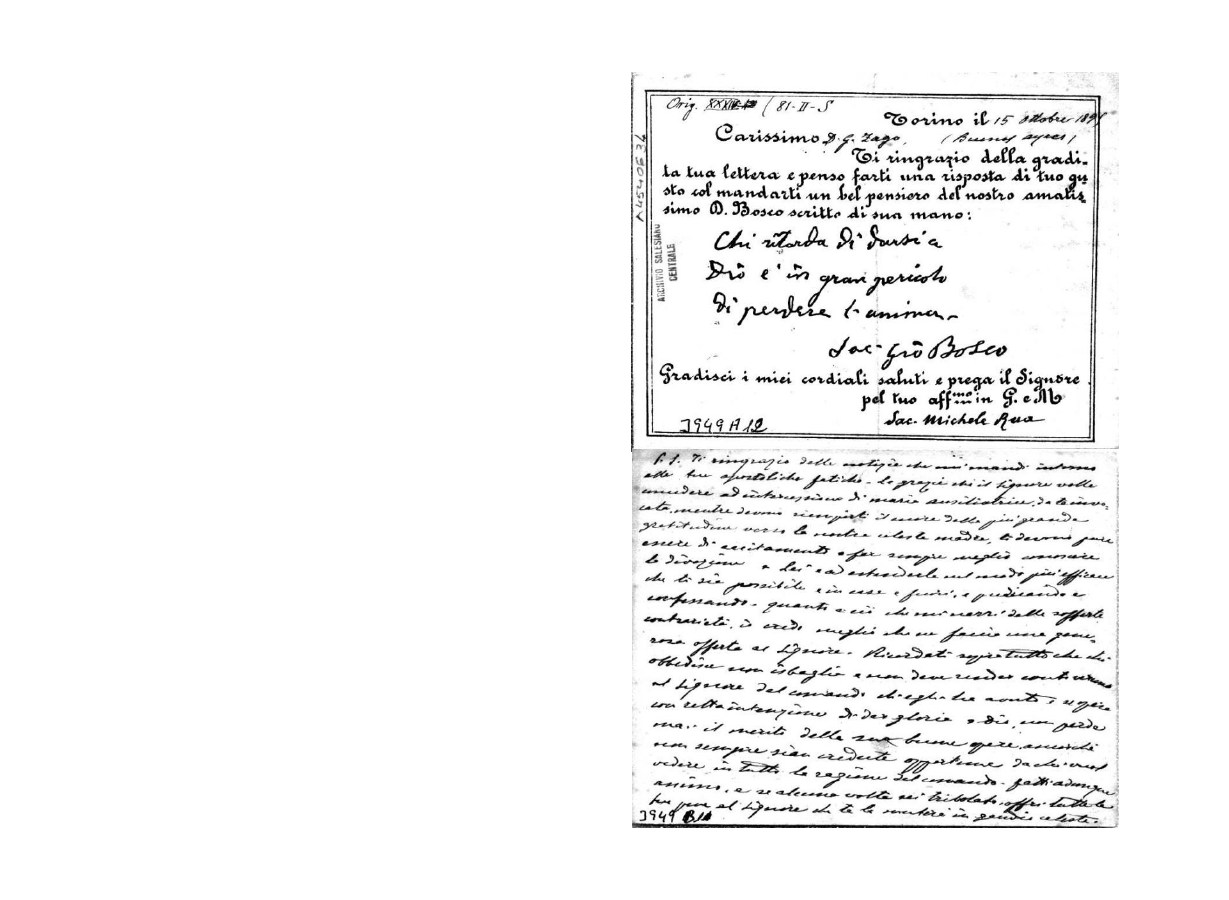 Orig. (81-II-S
Torino il 15 ottobre 189
Carissimo D. G. Zago, (Buenos ayres)
Ti ringrazio della gradi-
ta tua lettera e penso farti una risposta di tuo gu
sto col mandarti un bel pensiero del nostro amatis-
simo D. Bosco scritto di sua mano:
ARCHIVIO SALESIANO
CENTRALE
Chi ritarda di darsi a
Dio e' in gran pericolo
di perdere l'anima.
Sac. Gio Bosco
Gradisci i miei cordiali saluti e prega il Signore
pel tuo affmo in G. e M
Sac. Michele Rua
3949 A 12
P. S. Ti ringrazio delle notizie che mi mandi intorno
alle tue apostoliche fatiche. Le grazie che il Signore volle
concedere ad intercessione di Maria Ausiliatrice, da te invo-
cata, mentre devono riempirti il cuore della più grande
gratitudine verso la nostra celeste madre, ti devono pure
essere di eccitamento a far sempre meglio conoscere
la divozione a Lei e ad estenderla nel modo più efficace
che ti sia possibile e in casa e fuori, e predicando e
confessando. quanto a ciò che mi narri delle sofferte
contrarietà, io credo meglio che ne faccia una gene-
rosa offerta al Signore. Ricordati sopratutto che chi
obbedisce non isbaglia e non deve render conto
al Signore del comando ch'egli ha avuto; se opera
con retta intenzione di dar gloria a Dio, non perde
mai il merito delle sue buone opere, ancorchè
non sempre sian credute opportune da chi vuol
vedere in tutto la ragione del comando. fatti adunque
animo, e se alcuna volta sei tribolato, offri tutto
pure al Signore che te lo muterà in gaudio celeste.
3949 B